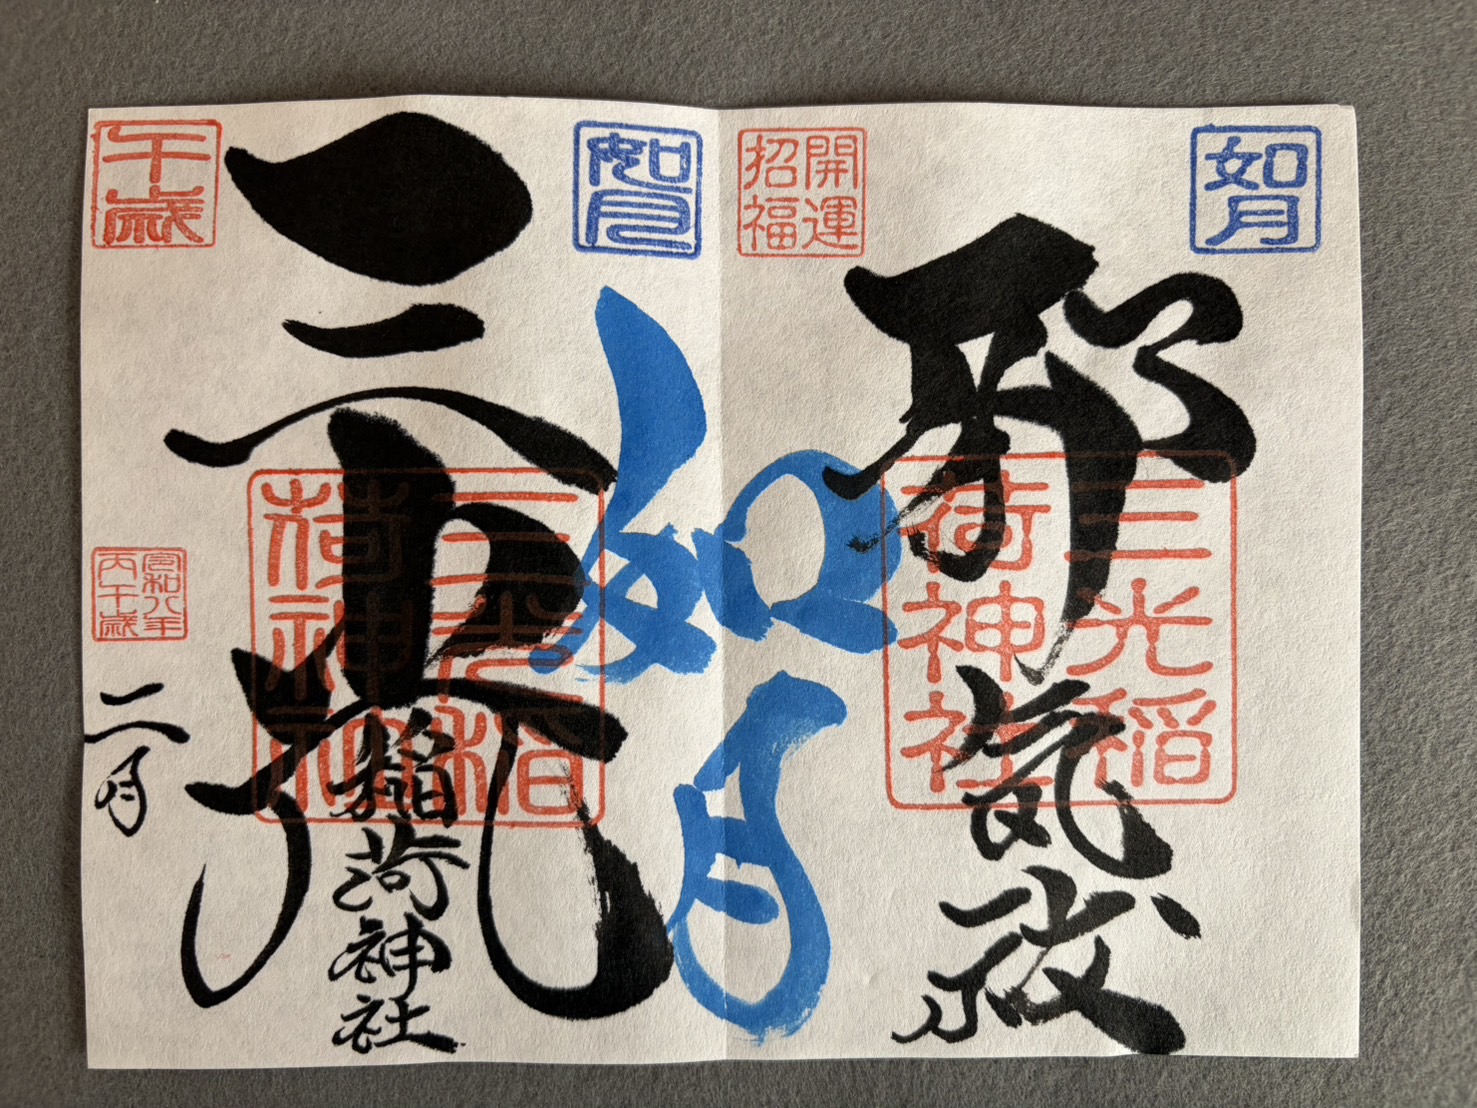 如月
邪気祓
三光稲
荷神社
開運
招福
如月
如月
三光稲荷神社
三光稲
荷神社
午歳
令和八年
丙午歳
二月